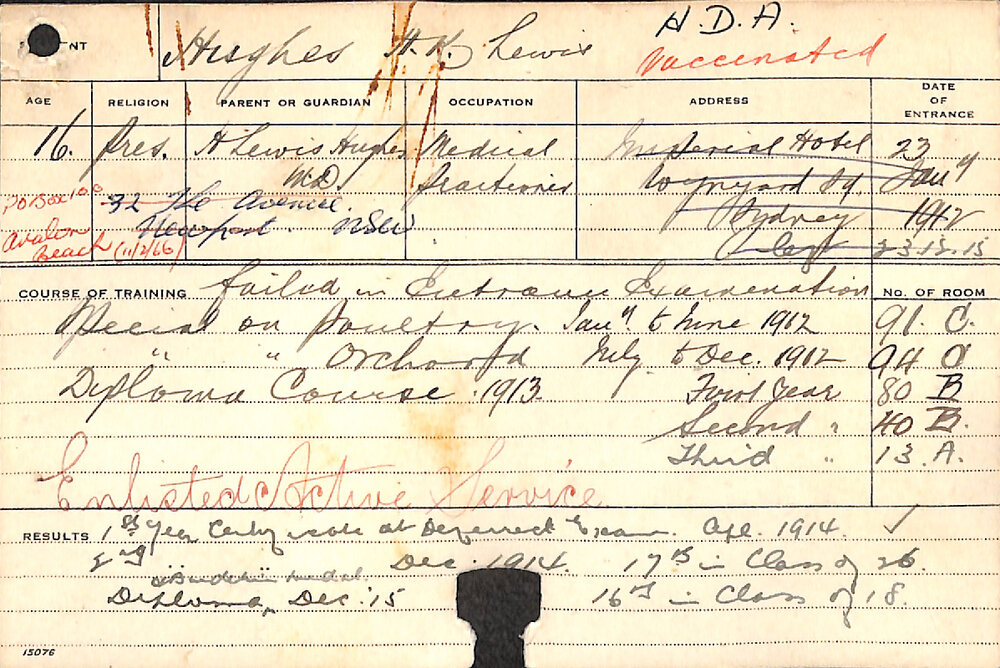 H.D.A.
NT Hughes H.K. Lewis Vaccinated
AGE RELIGION PARENT OR GUARDIAN OCCUPATION ADDRESS DATE OF ENTRANCE
16. Pres. H Lewis Hughes Medical Imperial Hotel 23
M.D. Practioner Wynyard Sq Jany
PO Box 100 32 The Avenue Sydney 1912
Avalon Beach (11/2/66) Newport. NSW. 23.12.15
COURSE OF TRAINING Failed in Entrance Examination No. OF ROOM
Special on Poultry. Jany to June 1912 91. C.
" " Orchard July to Dec. 1912 94 C
Diploma Course 1913. First Year 80 B
Second " 40 B.
Third " 13. A.
Enlisted Active Service
RESULTS 1st Year at Deferred Exam. Apl. 1914. ✓
2nd Dec. 1914. 17th in Class of 26.
medal.
Diploma, Dec. '15 16th in Class of 18.
15076